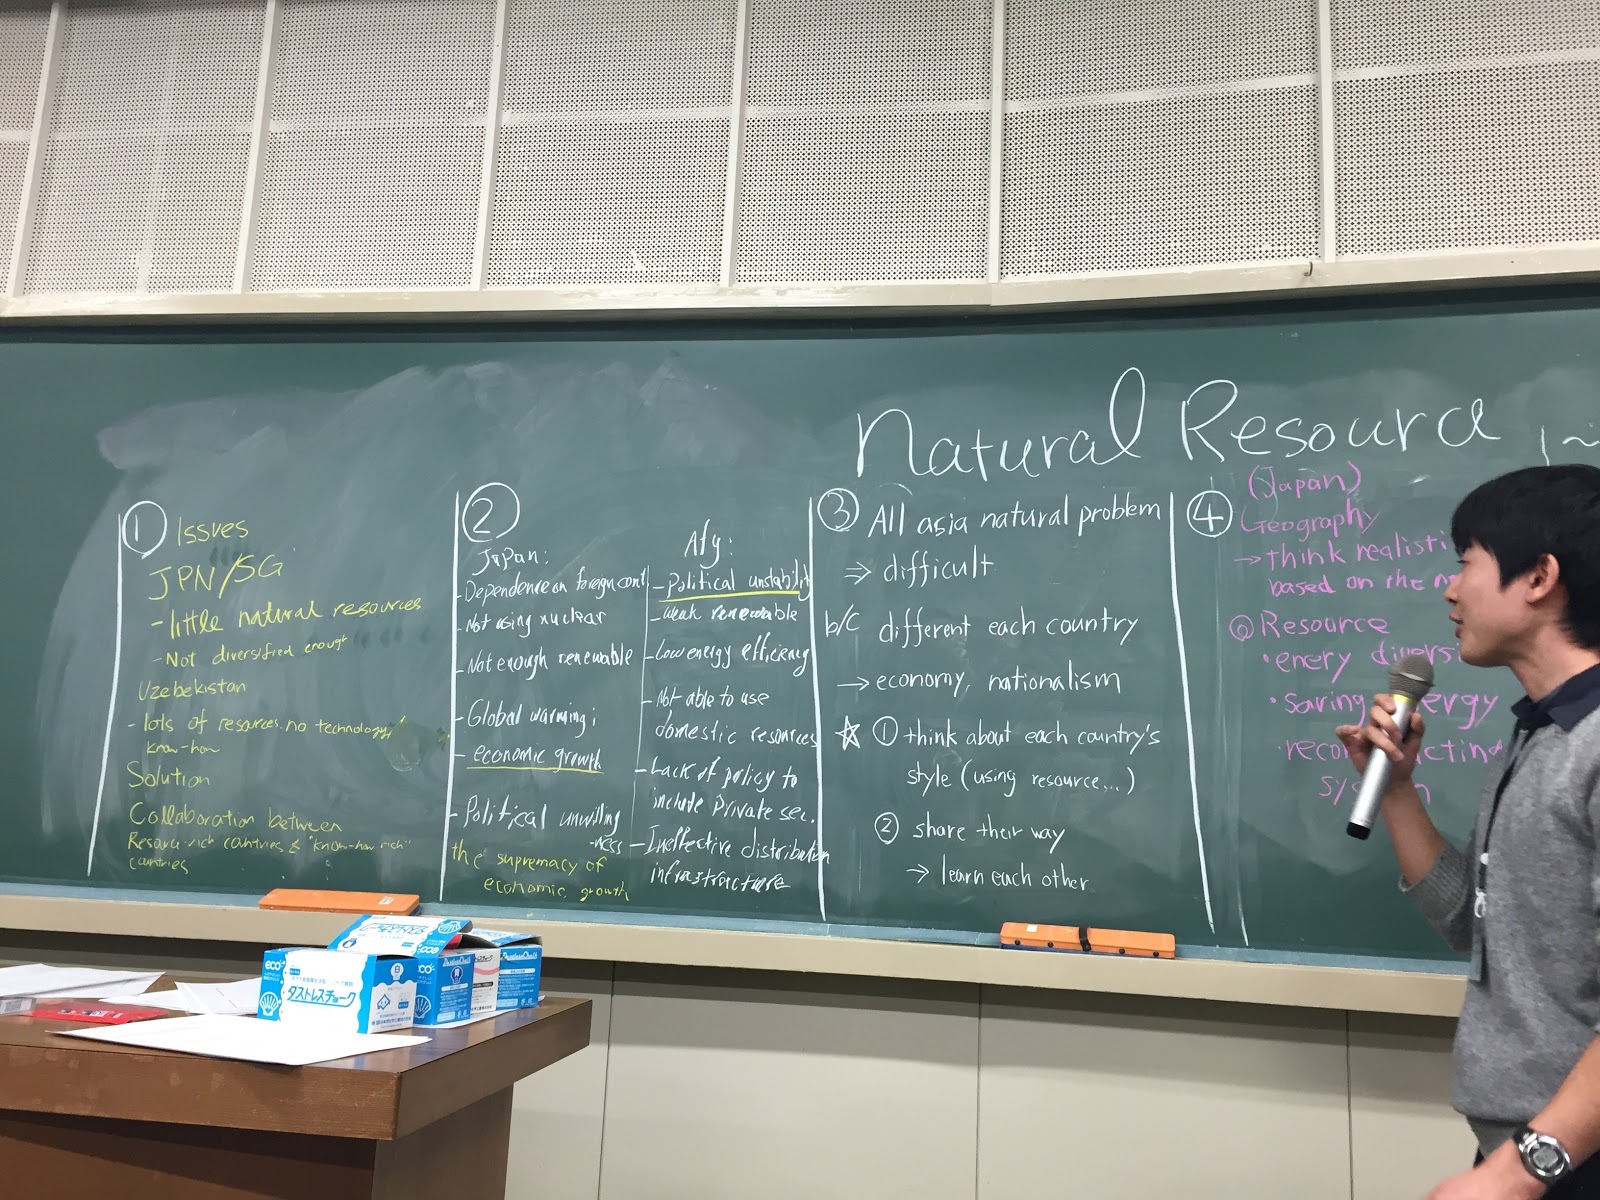 Natural Resource 1~
① Issues
JPN/SG
- little natural resources
- Not diversified enough
Uzebekistan
- lots of resources. no technology/
know-how
Solution
Collaboration between
Resource-rich countries & "know-how rich"
countries
②
Japan:
- Dependence on foreign cont
- Not using nuclear
- Not enough renewable
- Global warming;
- economic growth
- Political unwilling
-ness
the supremacy of
economic growth
Afg:
- political unstabilit
- weak renewable
- Low energy efficiency
- Not able to use
domestic resources
- Lack of policy to
include private sec.
- Ineffective distribution
infrastructure
③ All asia natural problem
⇒ difficult
b/c different each country
→ economy, nationalism
☆ ① think about each country's
style (using resource...)
② share their way
→ learn each other
④ (Japan)
Geography
→ think realisti
based on the
Resource
・enery diversi
・saving energy
・recon ucting
sy m
eco
ダストレスチョーク
DustlessChalk